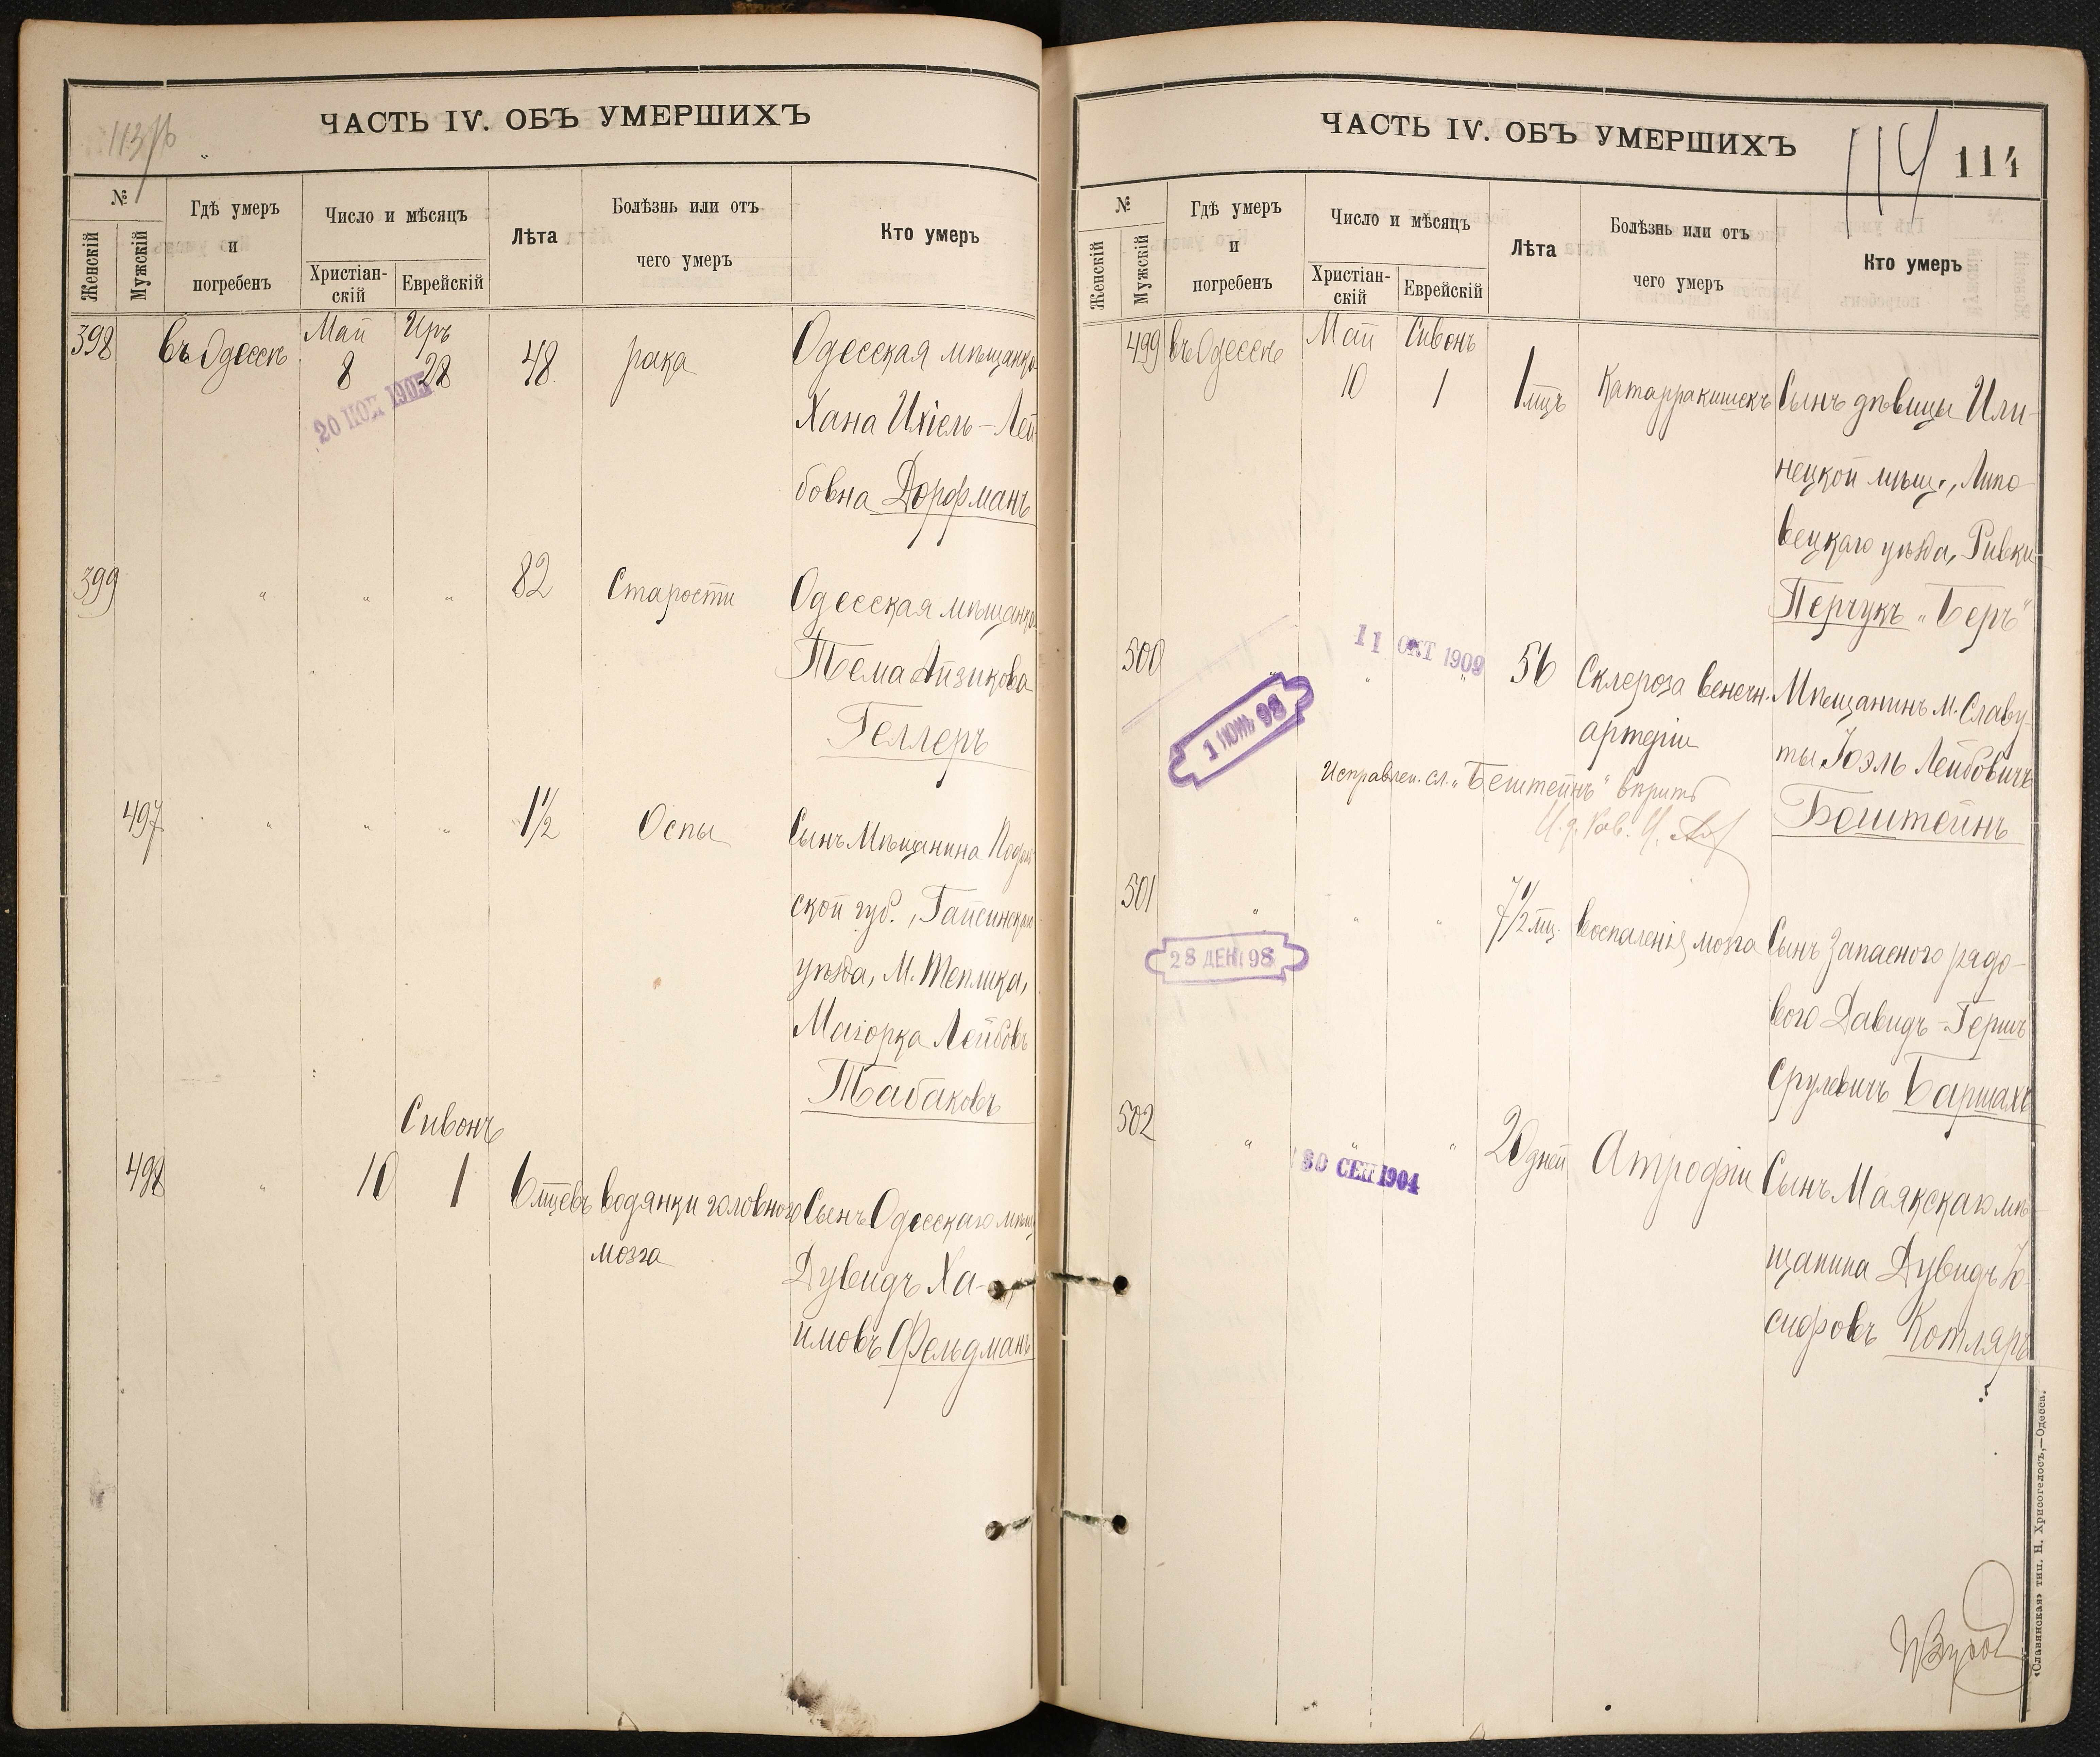 113/б
ЧАСТЬ IV. ОБЪ УМЕРШИХЪ
№
Женскій
Мужскій
Гдѣ умеръ
и
погребенъ
Число и мѣсяцъ
Христіан-
скій
Еврейскій
Лѣта
Болѣзнь или отъ
чего умеръ
Кто умеръ
398
въ Одессѣ
Май
8
Иръ
28
20 НОЯ 1905
48
рака
Одесская мѣщанка
Хана Ихіель-Лей
бовна Дорфманъ
399
" " "
82
Старости
Одесская мѣщанка
Тема Айзикова
Геллеръ
497
" " "
1 1/2
Оспы
Сынъ Мѣщанина Подоль
ской губ., Гайсинскаго
уѣзда, М. Теплика,
Маіорка Лейбовъ
Табаковъ
498
"
10
Сивонъ
1
6 мцевъ
водянки головного
мозга
Сынъ Одесскаго мѣщ
Дувидъ Ха-
имовъ Фельдманъ
ЧАСТЬ IV. ОБЪ УМЕРШИХЪ
114
114
№
Женскій
Мужскій
Гдѣ умеръ
и
погребенъ
Число и мѣсяцъ
Христіан-
скій
Еврейскій
Лѣта
Болѣзнь или отъ
чего умеръ
Кто умеръ
499
въ Одессѣ
Май
10
Сивонъ
1
1 мцъ
Катарра кишекъ
Сынъ дѣвицы Или-
нецкой мѣщ., Липо-
вецкаго уѣзда, Ривки
Перчукъ "Беръ"
500
" " "
11 ОКТ 1909
1 ИЮН 98
56
Склероза венечн.
артеріи
Мѣщанинъ м. Славу-
ты Іоэль Лейбовичъ
Бештейнъ
Исправлен. сл. "Бештейнъ" вѣрить
501
" " "
28 ДЕК 98
7 1/2 мц.
воспаленія мозга
Сынъ Запасного рядо-
вого Давидъ-Гершъ
Срулевичъ Баршахъ
502
" " "
30 СЕН 1904
20 дней
Атрофіи
Сынъ Маякскаго мѣ-
щанина Дувидъ Іо-
сифовъ Котляръ
«Славянская» тип. Н. Хрисогелосъ,—Одесса.